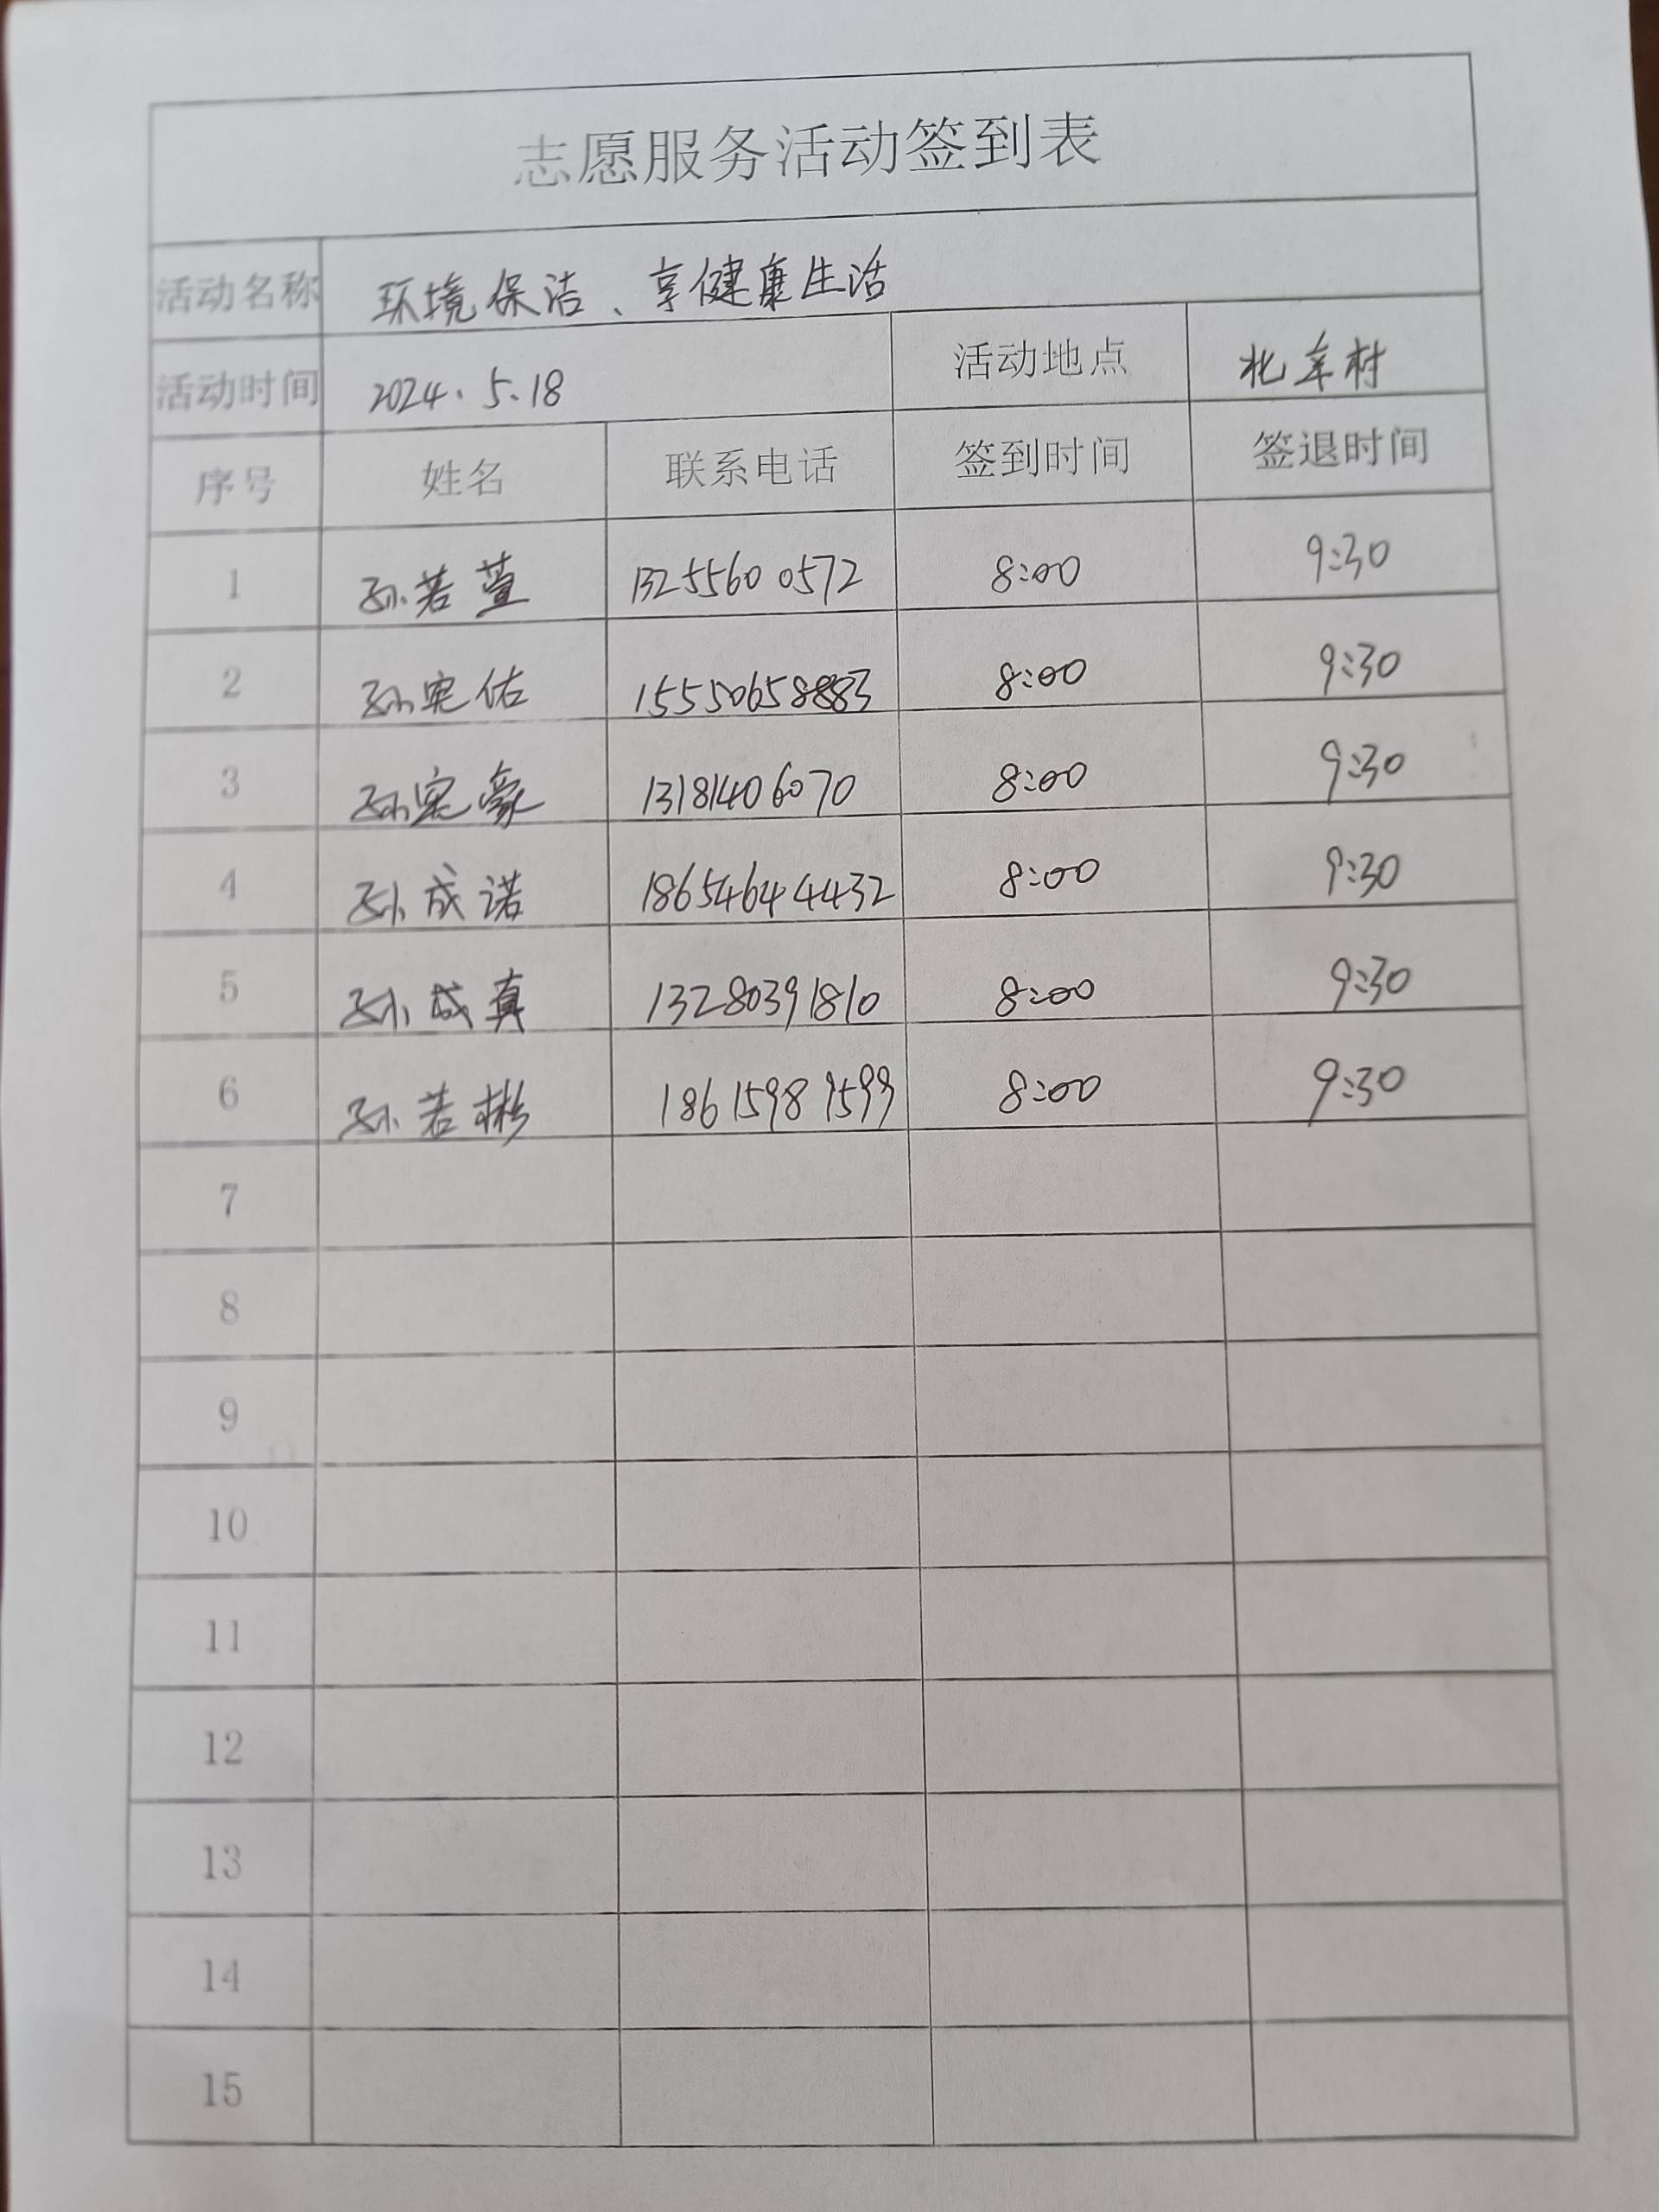 志愿服务活动签到表
活动名称 环境保洁、享健康生活
活动时间 2024.5.18 活动地点 北车村
序号 姓名 联系电话 签到时间 签退时间
1 孙若萱 13255600572 8:00 9:30
2 孙宪佑 15550658883 8:00 9:30
3 孙宪豪 13181406070 8:00 9:30
4 孙成诺 18654644432 8:00 9:30
5 孙成真 13280391810 8:00 9:30
6 孙若彬 18615989599 8:00 9:30
7
8
9
10
11
12
13
14
15